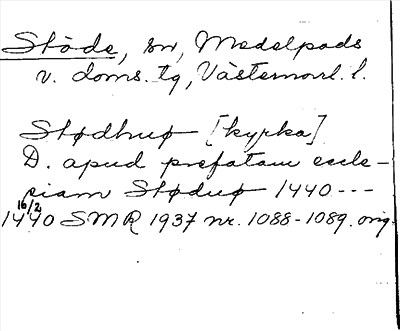 Stöde, sn, Medelpads
v. doms. tg, Västernorrl. l.
Stødhuø [kyrka]
D. apud prefatam eccle-
siam Støduø 1440 ---
16/2 1440 SMR 1937 nr. 1088-1089. orig.